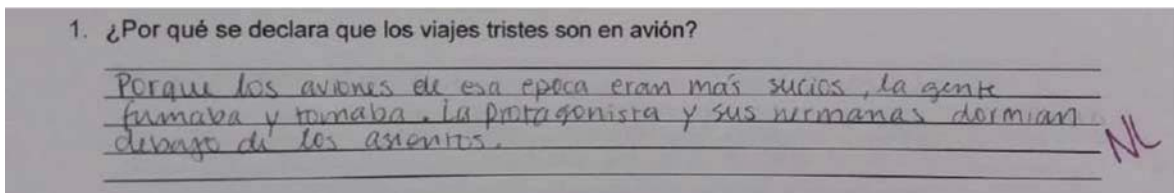 1. ¿Por qué se declara que los viajes tristes son en avión?
Porque los aviones de esa epoca eran más sucios, la gente
fumaba y tomaba. La protagonista y sus hermanas dormian
debajo de los asientos.
NL